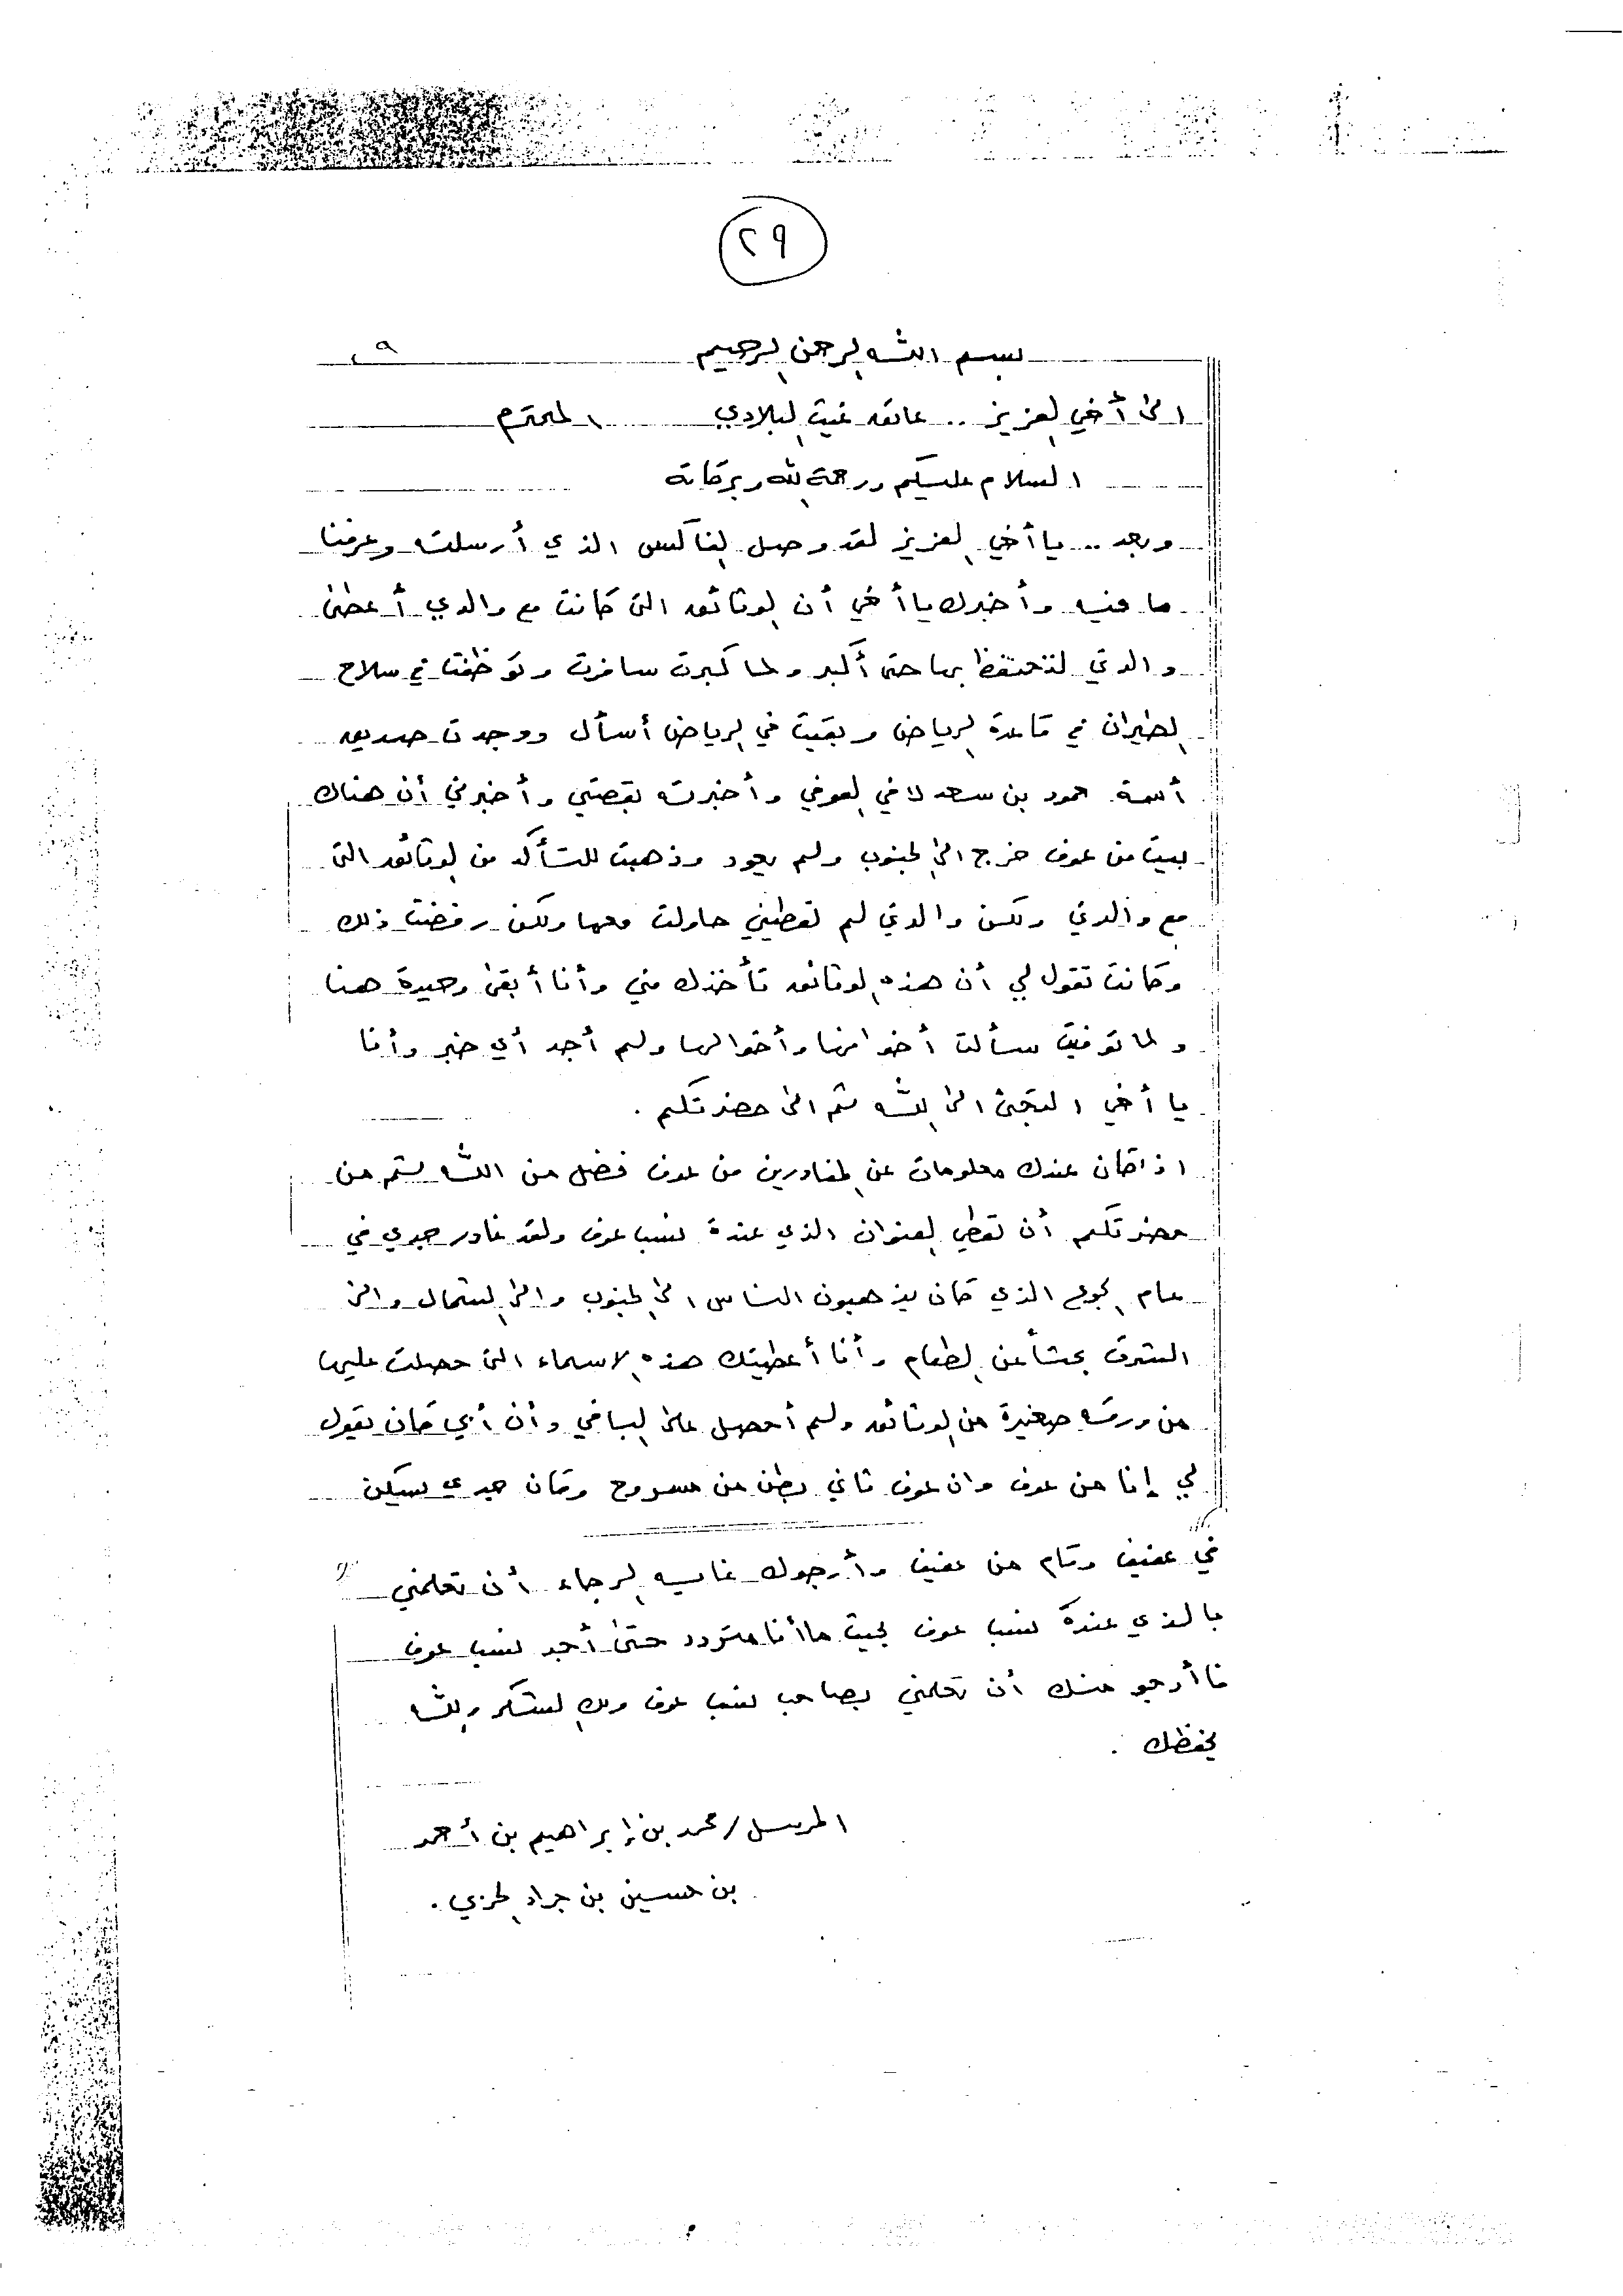 ٢٩
بسم الله الرحمن الرحيم ٢٩
الى أخي العزيز .. عاتق غيث البلادي المحترم
السلام عليكم ورحمة الله وبركاته
وبعد .. يا أخي العزيز لقد وصل الفاكس الذي أرسلت وعرفنا
ما فيه وأخبرك يا أخي أن الوثائق التى كانت مع والدي أعطى
والدتي لتحتفظ بها حتى أكبر ولما كبرت سافرت وتوظفت في سلاح
الطيران في قاعدة الرياض وبقيت في الرياض أسأل ووجدت صديق
أسمة حمود بن سعد لافي العوفي وأخبرته بقصتي وأخبرني أن هناك
بيت من عوف خرج الى الجنوب ولم يعود وذهبت للتأكد من الوثائق التى
مع والدتي ولكن والدتي لم تعطيني حاولت معها ولكن رفضت ذلك
وكانت تقول لي أن هذه الوثائق تأخذك مني وأنا أبقى وحيدة هنا
ولما توفيت سألت أخوانها وأخوالها ولم أجد أي خبر وأنا
يا أخي التجئ الى الله ثم الى حضرتكم .
اذا كان عندك معلومات عن المغادرين من عوف فضل من الله ثم من
حضرتكم أن تعطي العنوان الذي عندة نسب عوف ولقد غادر جدي في
عام الجوع الذي كان يذهبون الناس الى الجنوب والى الشمال والى
الشرق بحثاً عن الطعام وأنا أعطيتك هذه الاسماء التى حصلت عليها
من ورقه صغيرة من الوثائق ولم أحصل على الباقي وأن أبي كان يقول
لي إنا من عوف وان عوف ثاني بطن من مسروح وكان جدي يسكن
في عفيف وقام من عفيف وأرجوك غايه الرجاء أن تعلمني
بالذي عندة نسب عوف بحيث ما أنا متردد حتى أجد نسب عوف
فاأرجو منك أن تعلمني بصاحب نسب عوف ولك الشكر والله
يحفظك .
المرسل / محمد بن إبراهيم بن أحمد
بن حسين بن جراد الحربي .